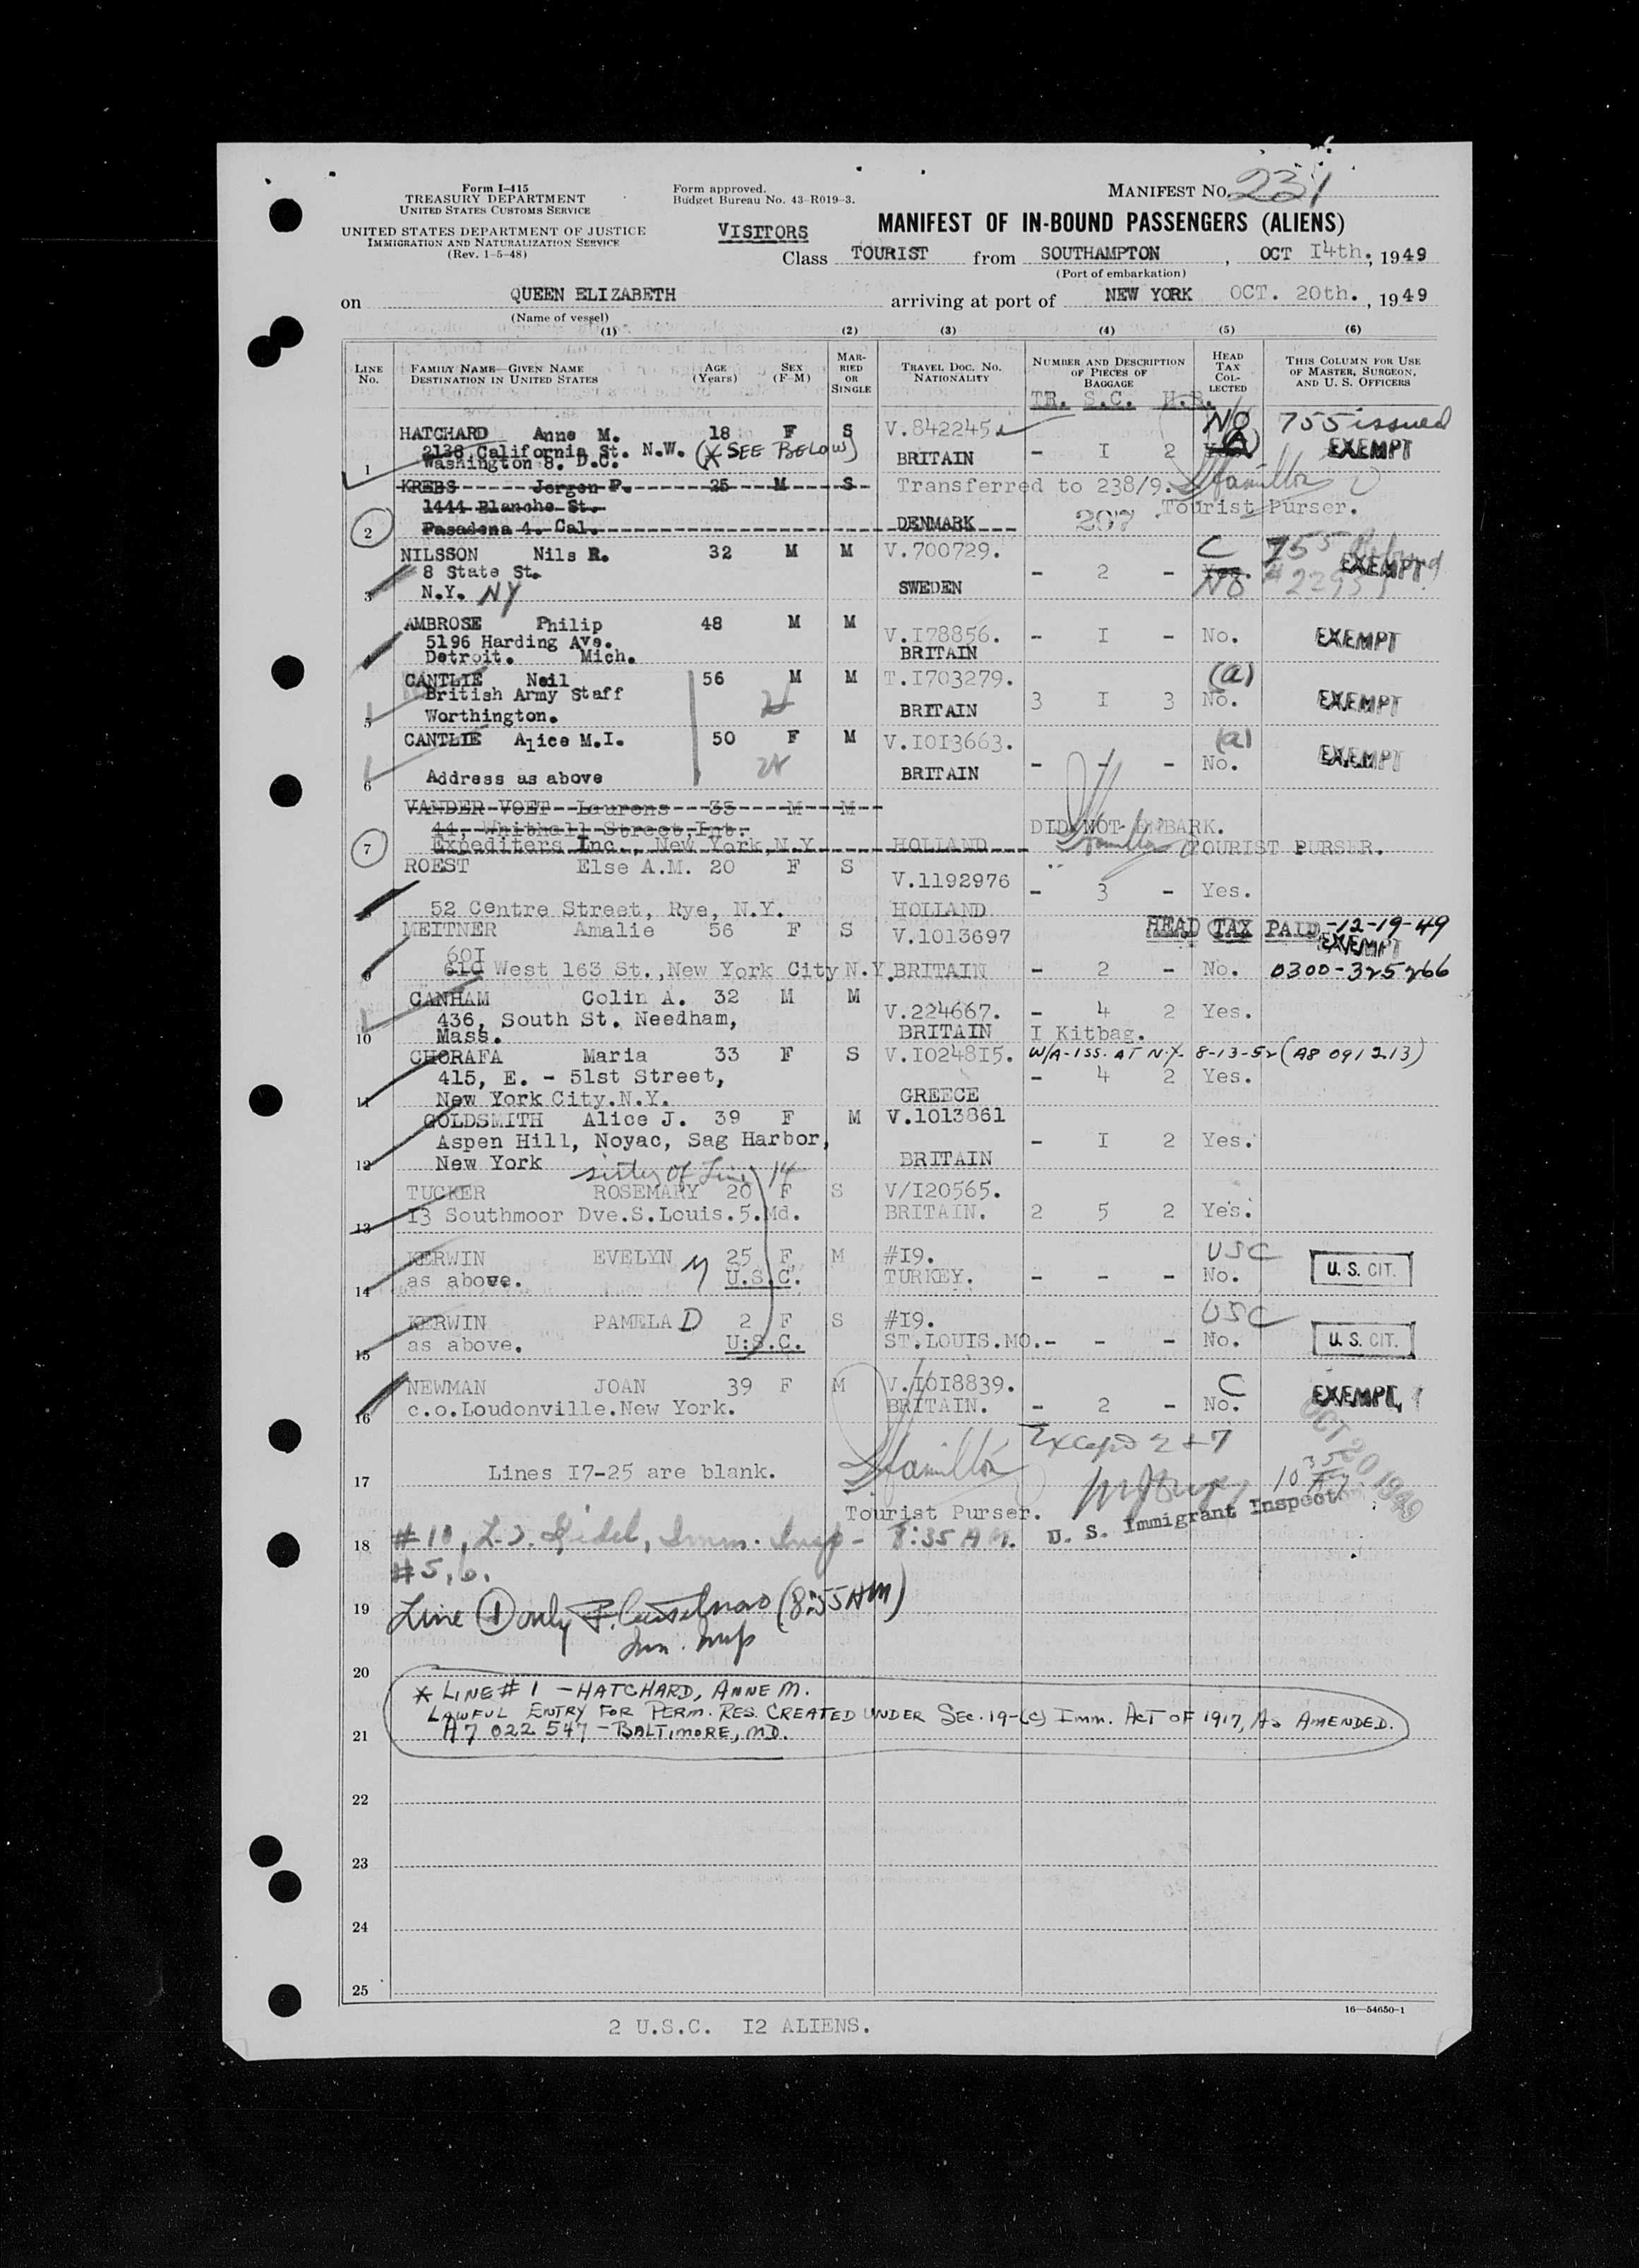 Form I-415
TREASURY DEPARTMENT
UNITED STATES CUSTOMS SERVICE
UNITED STATES DEPARTMENT OF JUSTICE
IMMIGRATION AND NATURALIZATION SERVICE
(Rev. 1-5-48)
Form approved.
Budget Bureau No. 43-R019-3.
MANIFEST No. 231
VISITORS
MANIFEST OF IN-BOUND PASSENGERS (ALIENS)
Class TOURIST from SOUTHAMPTON, OCT 14th., 1949
(Port of embarkation)
on QUEEN ELIZABETH arriving at port of NEW YORK OCT. 20th., 1949
(Name of vessel)
(1) (2) (3) (4) (5) (6)
LINE No.
FAMILY NAME—GIVEN NAME
DESTINATION IN UNITED STATES
AGE (Years)
SEX (F-M)
MARRIED OR SINGLE
TRAVEL DOC. NO. NATIONALITY
NUMBER AND DESCRIPTION OF PIECES OF BAGGAGE
HEAD TAX COLLECTED
THIS COLUMN FOR USE OF MASTER, SURGEON, AND U. S. OFFICERS
TR. S.C. H.B.
HATCHARD Anne M. 18 F S V.842245 No 755 issued
2138 California St. N.W. (* SEE BELOW) - I 2 Yes (A) EXEMPT
1 Washington 8. D.C. BRITAIN
KREBS Jorgen P. 25 M S Transferred to 238/9. Hamilton
1444 Blanche St. 207 Tourist Purser.
2 Pasadena 4. Cal. DENMARK
NILSSON Nils R. 32 M M V.700729. C 755
8 State St. - 2 - Yes. EXEMPT
3 N.Y. NY SWEDEN No
AMBROSE Philip 48 M M V.I78856. - I - No. EXEMPT
5196 Harding Ave. BRITAIN
4 Detroit. Mich.
CANTLIE Neil 56 M M T.I703279. (a)
British Army Staff 3 I 3 No. EXEMPT
5 Worthington. BRITAIN
CANTLIE Alice M.I. 50 F M V.IOI3663. (a)
- - - No. EXEMPT
6 Address as above BRITAIN
VANDER VOET Laurens 35 M M
44, Whitehall Street, Int. DID NOT EMBARK.
7 Expediters Inc., New York, N.Y. HOLLAND Hamilton TOURIST PURSER.
ROEST Else A.M. 20 F S V.1192976 - 3 - Yes.
8 52 Centre Street, Rye, N.Y. HOLLAND
MEITNER Amalie 56 F S V.1013697 HEAD TAX PAID -12-19-49
60I EXEMPT
9 610 West 163 St., New York City N.Y. BRITAIN - 2 - No. 0300-325266
CANHAM Colin A. 32 M M V.224667. - 4 2 Yes.
436, South St. Needham, BRITAIN I Kitbag.
10 Mass.
CHORAFA Maria 33 F S V.IO248I5. W/A-ISS. AT N.Y. 8-13-52 (A8 091 213)
415, E. - 51st Street, - 4 2 Yes.
11 New York City.N.Y. GREECE
GOLDSMITH Alice J. 39 F M V.1013861
Aspen Hill, Noyac, Sag Harbor, - I 2 Yes.
12 New York BRITAIN
sister of Line 14
TUCKER ROSEMARY 20 F S V/I20565.
13 I3 Southmoor Dve.S.Louis.5.Md. BRITAIN. 2 5 2 Yes.
KERWIN EVELYN M 25 F M #I9. USC
14 as above. U.S.C. TURKEY. - - - No. U. S. CIT.
KERWIN PAMELA D 2 F S #I9. USC
15 as above. U.S.C. ST.LOUIS.MO. - - - No. U. S. CIT.
NEWMAN JOAN 39 F M V.IOI8839. C
16 c.o.Loudonville.New York. BRITAIN. - 2 - No. EXEMPT
Except 2 + 7
OCT 20 1949
17 Lines I7-25 are blank. Hamilton 10 35 AM
Tourist Purser. U. S. Immigrant Inspector
18 #10, Imm. Insp - 8:35 AM.
#5, 6.
19 Line 1 only (8:55 AM)
Imm. Insp
20
* LINE # 1 - HATCHARD, ANNE M.
LAWFUL ENTRY FOR PERM. RES. CREATED UNDER SEC. 19-(C) IMM. ACT OF 1917, AS AMENDED.
21 A7 022 547 - BALTIMORE, MD.
22
23
24
25
16—54650-1
2 U.S.C. I2 ALIENS.